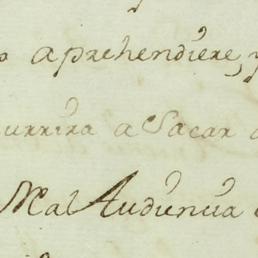 aprehendiere, y
currira a Sacar
Rl Audiencia